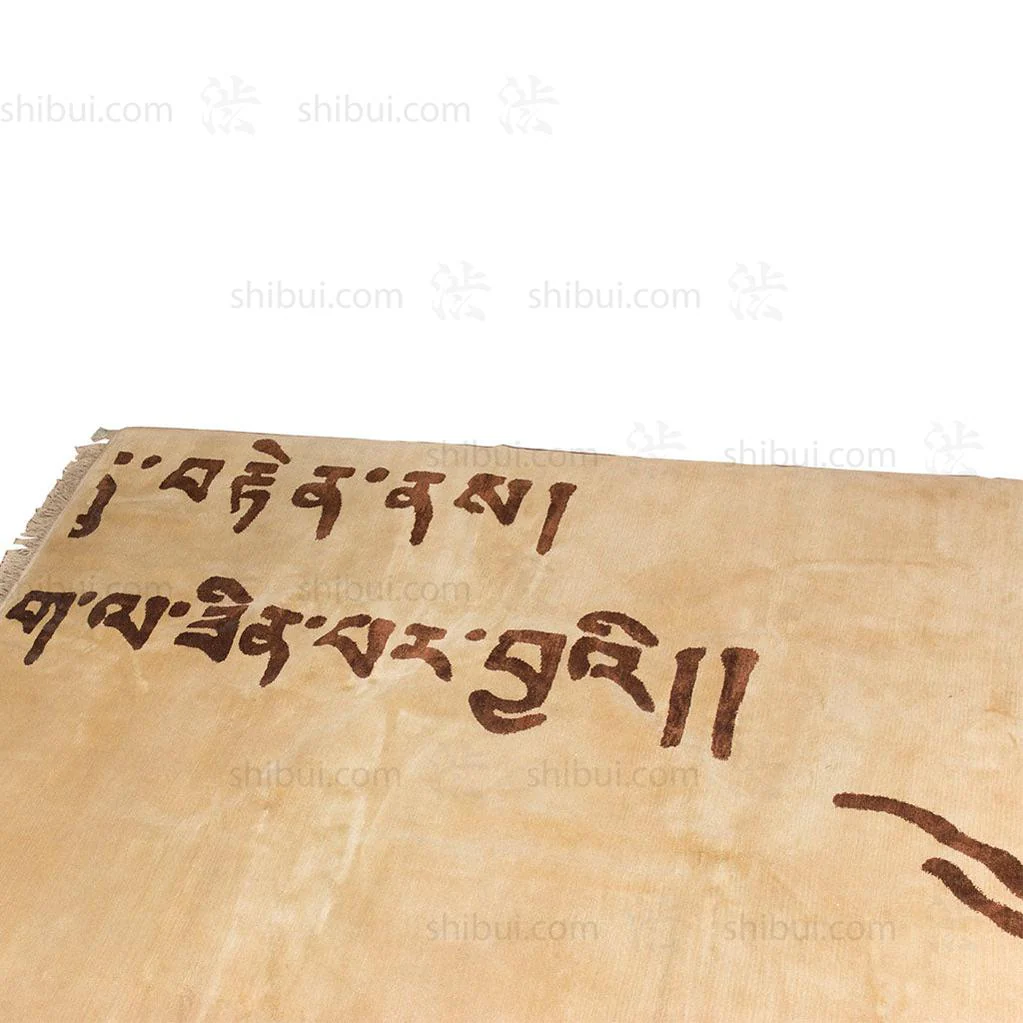 shibui.com 渋 shibui.com 渋
shibui.com 渋 shibui.com 渋
shibui.com 渋 shibui.com 渋
བརྟེན་ནས།
shibui.com shibui.com
ག་ལ་ཟིན་པར་བྱའི།།
shibui.com shibui.com
shibui.com shibui.com